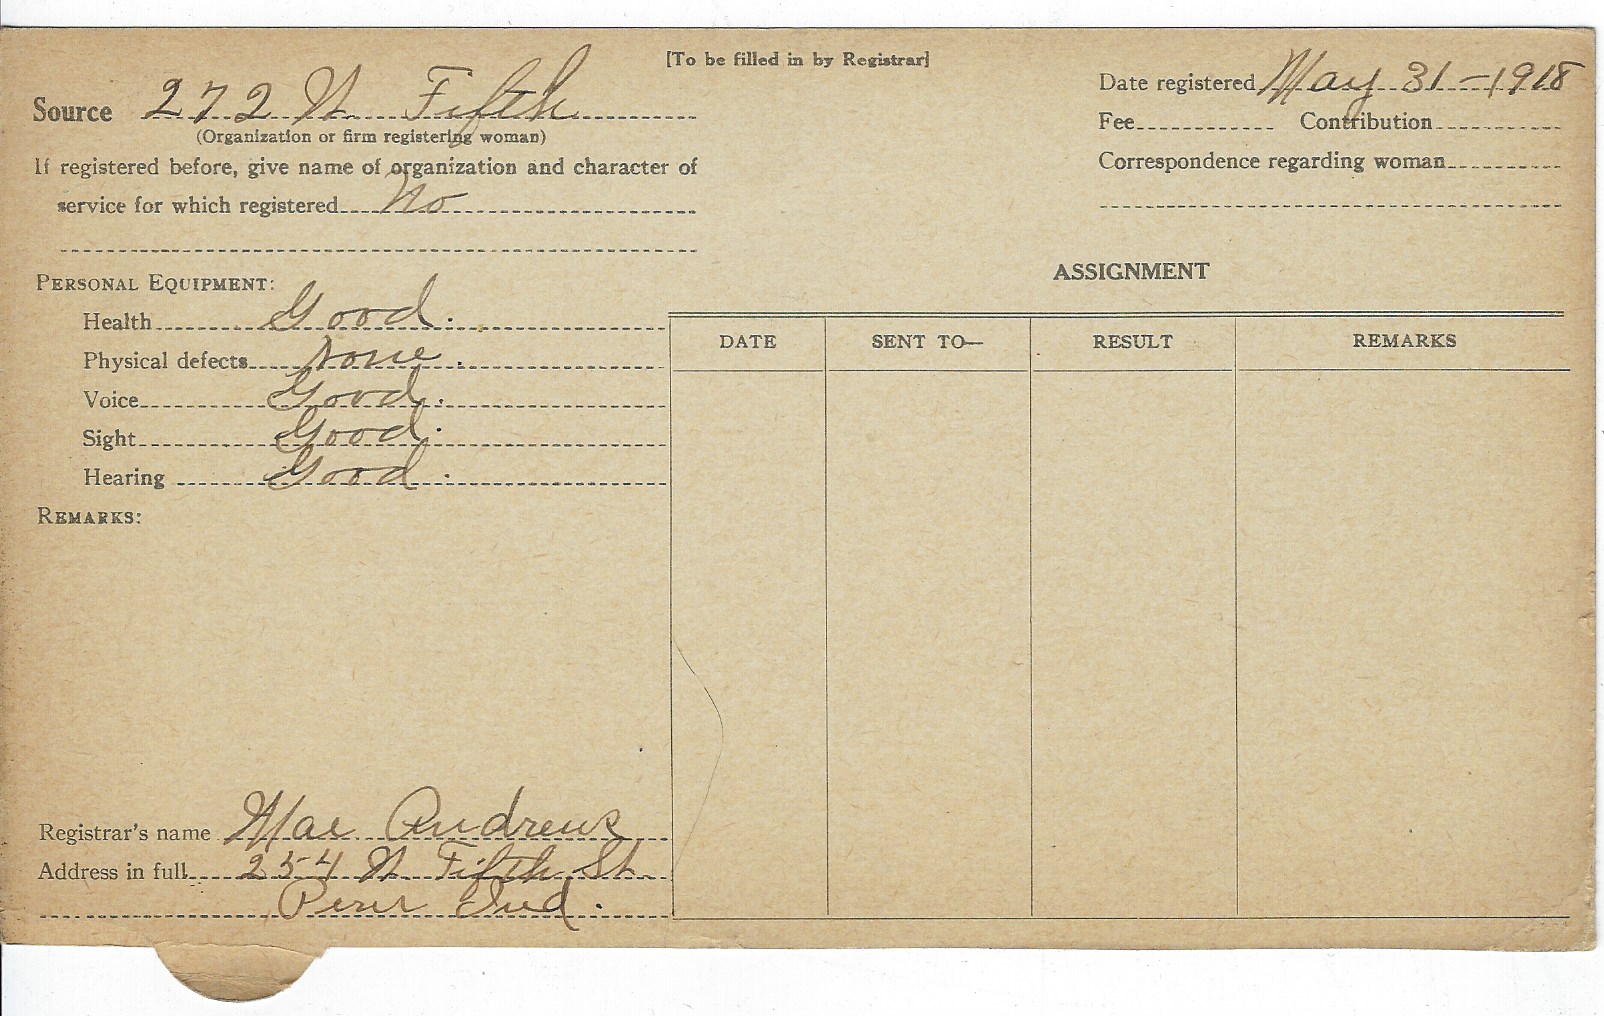 [To be filled in by Registrar]
Source 272 N Fifth
(Organization or firm registering woman)
If registered before, give name of organization and character of
service for which registered No
Date registered May 31-1918
Fee Contribution
Correspondence regarding woman
PERSONAL EQUIPMENT:
Health Good.
Physical defects None.
Voice Good.
Sight Good.
Hearing Good.
REMARKS:
ASSIGNMENT
DATE SENT TO— RESULT REMARKS
Registrar's name Mae Andrews
Address in full 254 N Fifth St.
Peru Ind.